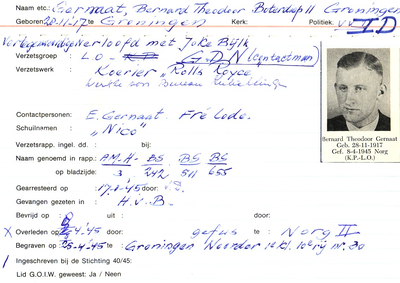 Naam etc.: Gernaat, Bernard Theodoor Boterdiep 11 Groningen
Geboren: 28-11-'17 te Groningen Kerk: Politiek:
I D
verloofd met Joke Bijlk
Verzetsgroep : L O - K P G D N (contactman)
Verzetswerk Koerier "Rolls Royce"
Contactpersonen: E. Gernaat Fré Lode.
Schuilnamen : "Nico"
Verzetsrapp. ingel. dd. : bij:
Naam genoemd in rapp.: P.M.H. - BS BS BS
op bladzijde: 3 242 511 655
Gearresteerd op : 17-2-45 door:
Gevangen gezeten in : H.v.B.
Bevrijd op : uit : door:
X Overleden op : 8-4-'45 te : Norg II
Begraven op : 5-4-'45 te : Groningen Noorder 1e kl. 10e rij nr. 30
Ingeschreven bij de Stichting 40/45:
Lid G.O.I.W. geweest: Ja / Neen
Bernard Theodoor Gernaat
Geb. 28-11-1917
Gef. 8-4-1945 Norg
(K.P.-L.O.)